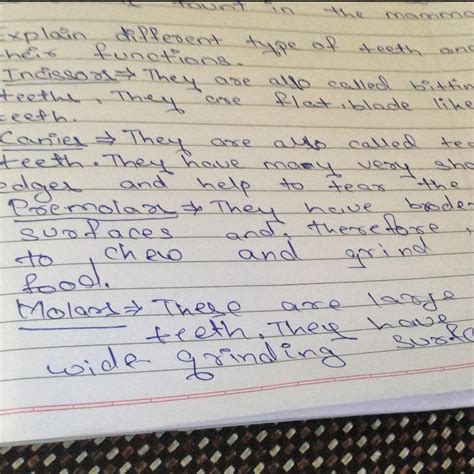 taunt in the mamma
Explain different type of teeth an
their functions.
Incissors → They are also called bitin
teeths, They are flat, blade like
teeth.
Canies → They are also called tea
teeth. They have many very sha
edges and help to tear the
Premolars → They have broder
surfaces and, therefore,
to chew and grind
food.
Molars → These are large
teeth. They have
wide grinding surfac